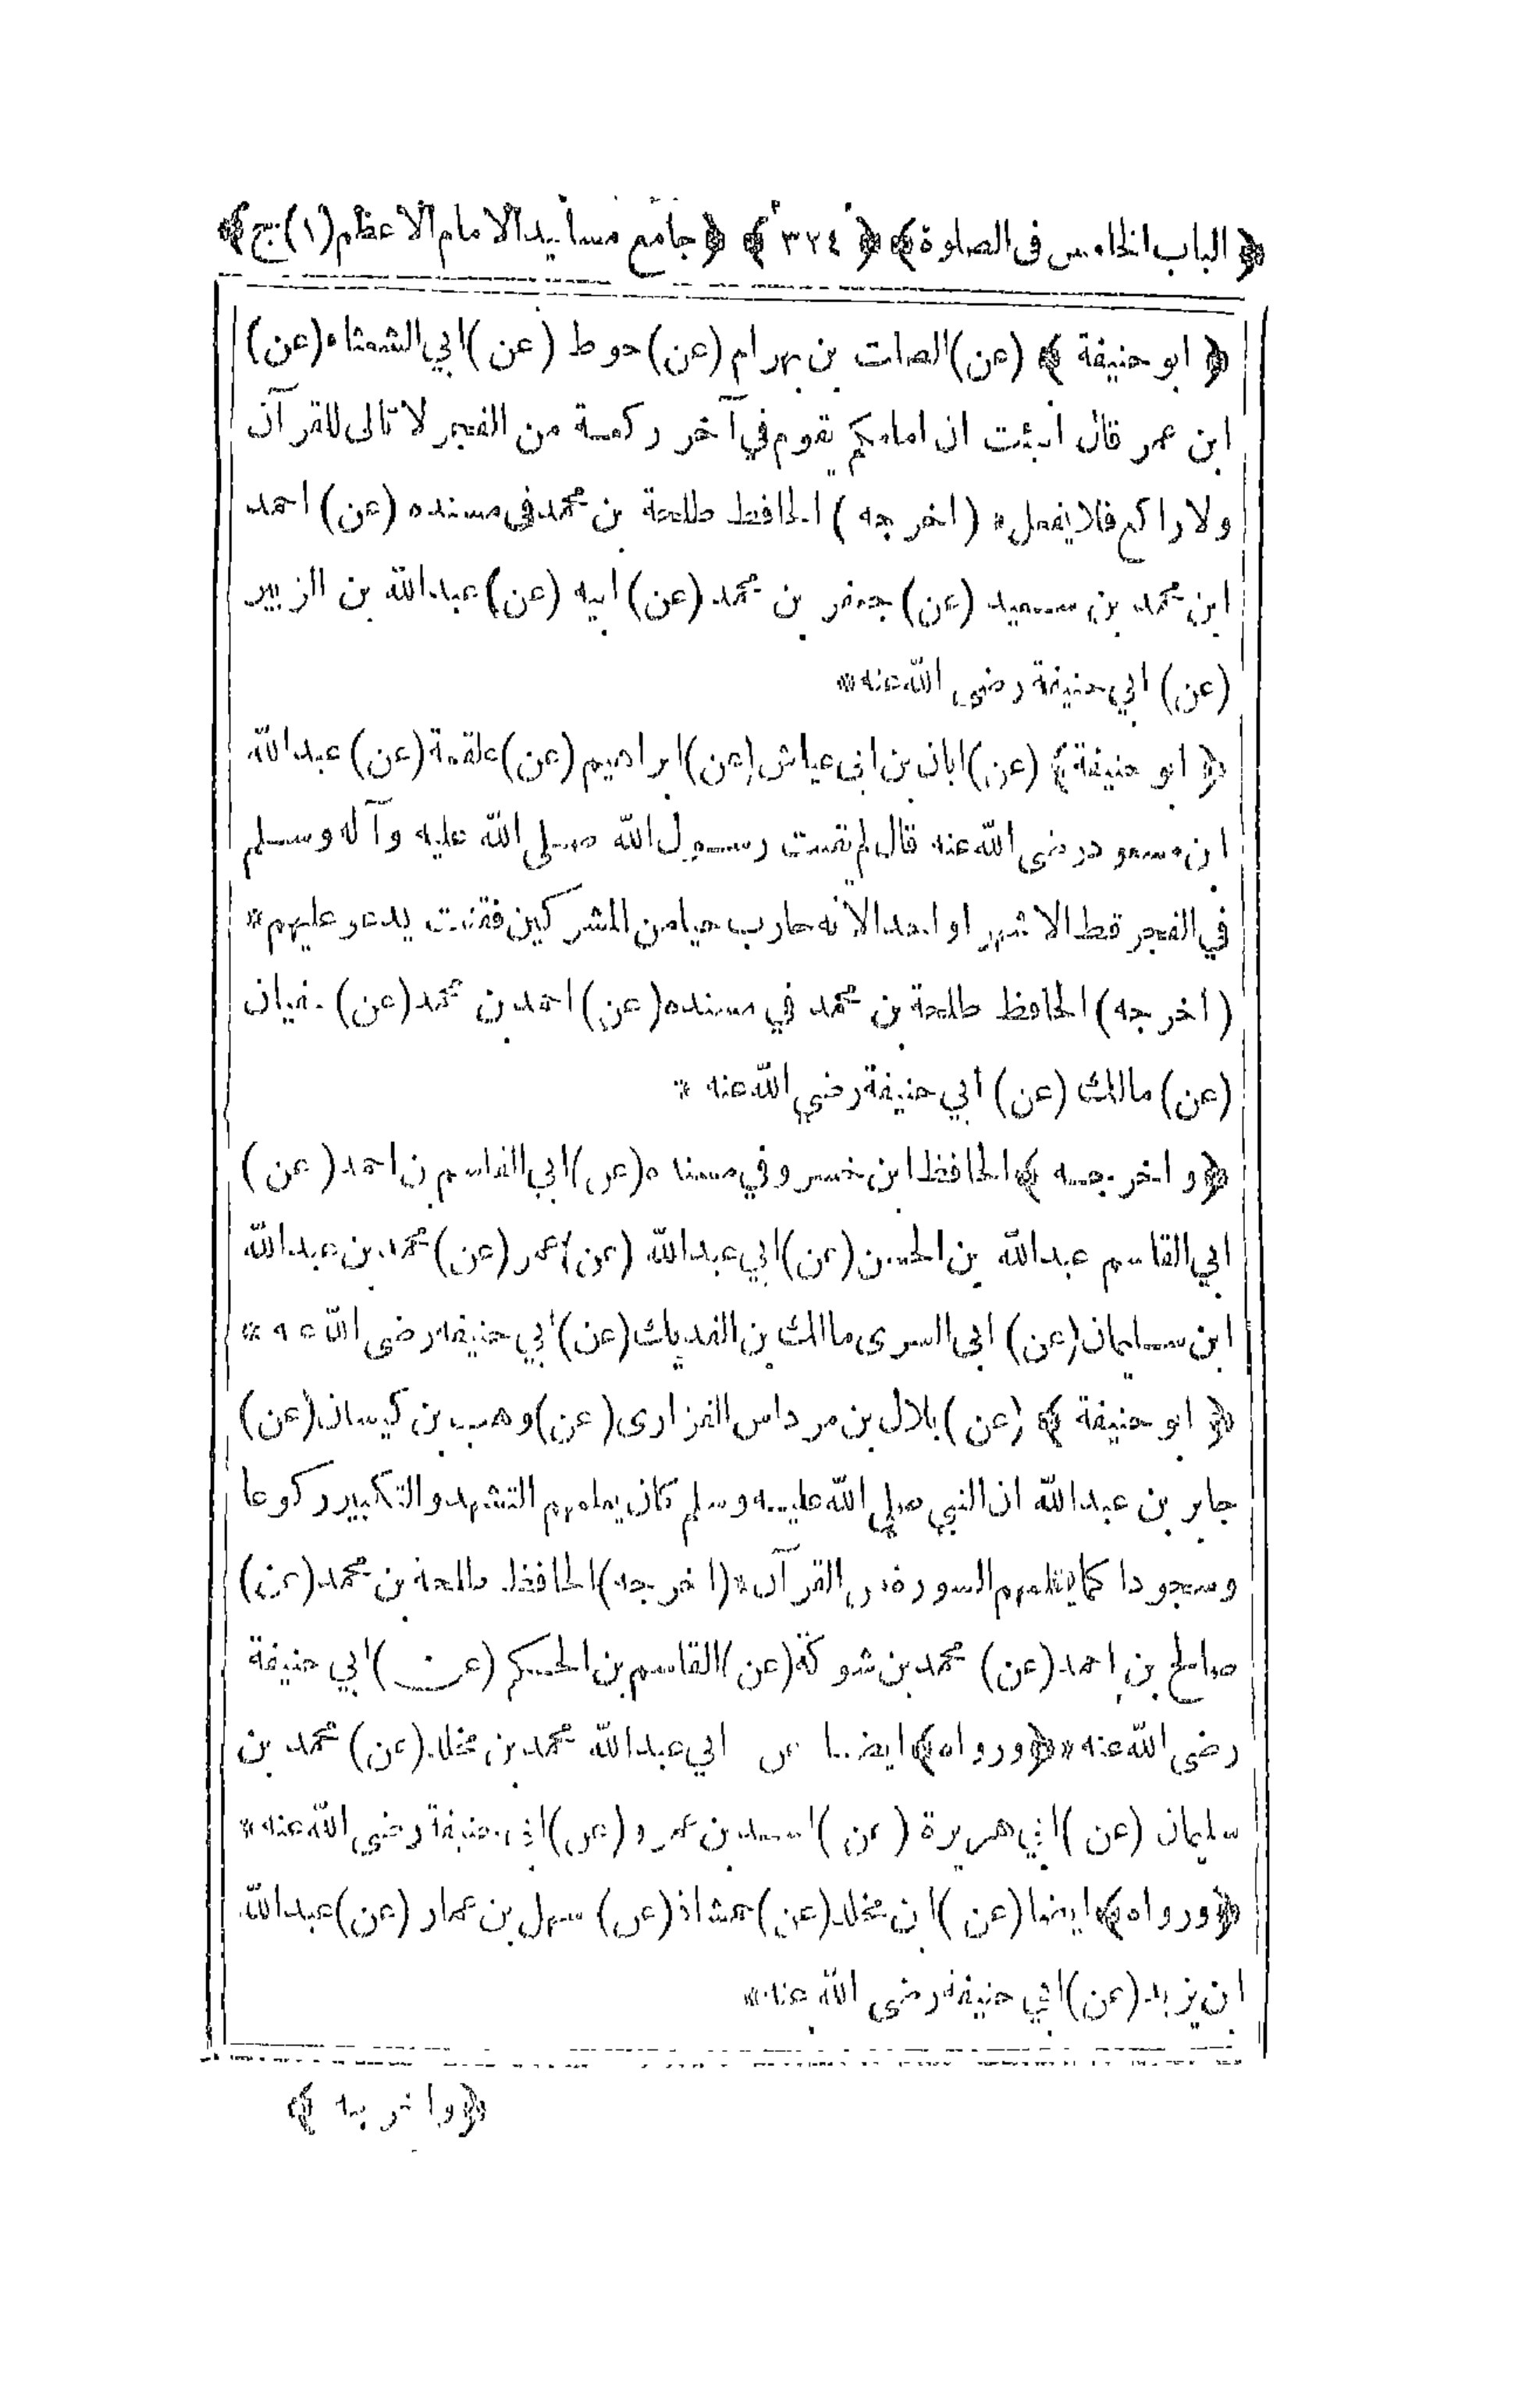 ﴿ الباب الخامس فى الصلوة﴾ ﴿ ٣٢٤ ﴾ ﴿ جامع مسانيد الامام الاعظم (١) ج﴾
﴿ ابو حنيفة ﴾ (عن) الصلت بن بهرام (عن) حوط (عن) ابي الشعثاء (عن)
ابن عمر قال انبئت ان امامكم يقوم في آخر ركعة من الفجر لا تالى للقرآن
ولا راكع فلا يفعل * ( اخرجه ) الحافظ طلحة بن محمد فى مسنده (عن) احمد
ابن محمد بن سعيد (عن) جعفر بن محمد (عن) ابيه (عن) عبدالله بن الزبير
(عن) ابي حنيفة رضى الله عنه *
﴿ ابو حنيفة ﴾ (عن) ابان بن ابى عياش (عن) ابراهيم (عن) علقمة (عن) عبدالله
ابن مسعود رضى الله عنه قال لم يقنت رسول الله صلى الله عليه وآله وسلم
في الفجر قط الا شهرا واحدا لانه حارب حيا من المشركين فقنت يدعو عليهم *
( اخرجه ) الحافظ طلحة بن محمد في مسنده (عن) احمد بن محمد (عن)
(عن) مالك (عن) ابي حنيفة رضي الله عنه *
﴿ و اخرجه ﴾ الحافظ ابن خسرو في مسنده (عن) ابي القاسم بن احمد (عن)
ابي القاسم عبدالله بن الحسن (عن) ابي عبدالله (عن) عمر (عن) محمد بن عبدالله
ابن سليمان (عن) ابى السرى مالك بن الفديك (عن) ابي حنيفة رضى الله عنه *
﴿ ابو حنيفة ﴾ (عن) بلال بن مرداس الفزارى (عن) وهب بن كيسان (عن)
جابر بن عبدالله ان النبي صلى الله عليه وسلم كان يعلمهم التشهد والتكبير ركوعا
وسجودا كما يعلمهم السورة من القرآن * (اخرجه) الحافظ طلحة بن محمد (عن)
صالح بن احمد (عن) محمد بن شوكة (عن) القاسم بن الحكم (عن) ابي حنيفة
رضى الله عنه * ﴿ورواه﴾ ايضا عن ابي عبدالله محمد بن مخلد (عن) محمد بن
سليمان (عن) ابي هريرة (عن) اسد بن عمرو (عن) ابى حنيفة رضى الله عنه *
﴿ورواه﴾ ايضا (عن) ابن مخلد (عن) حمشاذ (عن) سهل بن عمار (عن) عبدالله
ابن يزيد (عن) ابي حنيفة رضى الله عنه *
﴿واخرجه ﴾